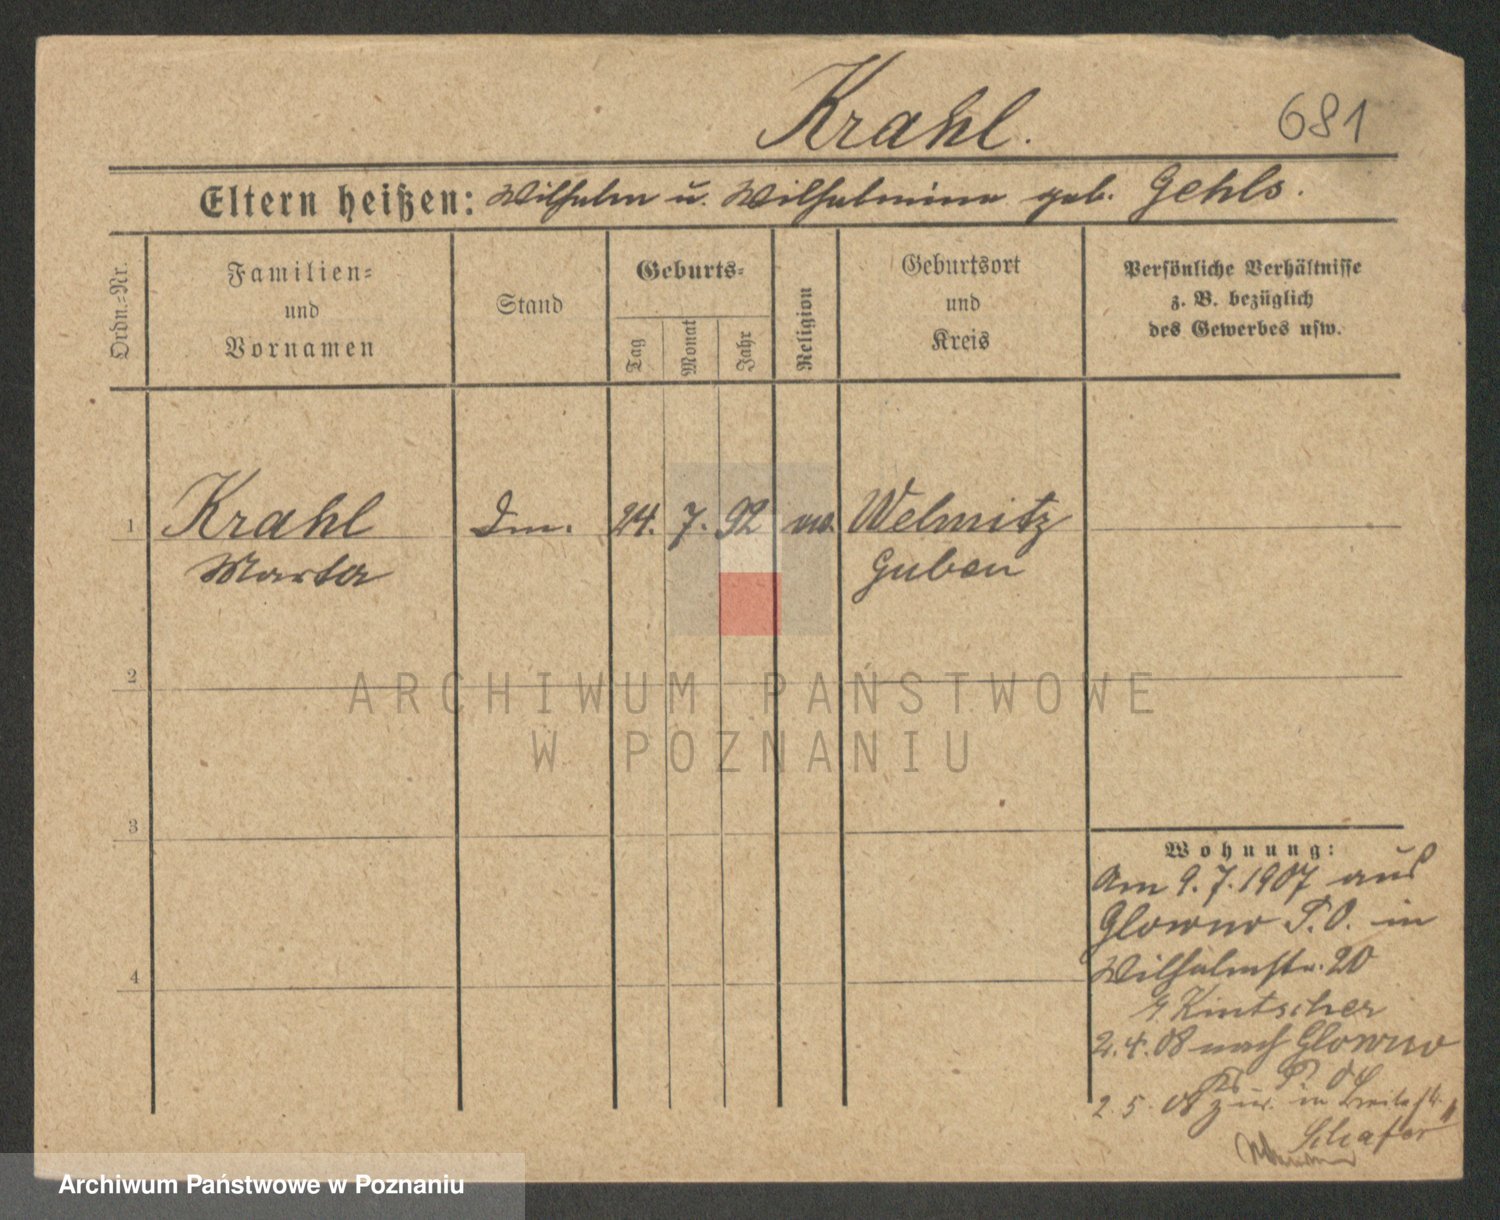 Krahl. 681
Eltern heißen: Wilhelm u. Wilhelmine geb. Gehls.
Ordn.-Nr.
Familien-
und
Vornamen
Stand
Geburts-
Tag
Monat
Jahr
Religion
Geburtsort
und
Kreis
Persönliche Verhältnisse
z. B. bezüglich
des Gewerbes usw.
1 Krahl 24. 7. 92 Welmitz
Marta Guben
2
3
4
Wohnung:
Am 9.7.1907 aus
Glowno P.O. in
Wilhelmstr. 20
Kintscher
2.4.08 nach Glowno
2.5.08 zur. in
Schäfer
ARCHIWUM PAŃSTWOWE
W POZNANIU
Archiwum Państwowe w Poznaniu